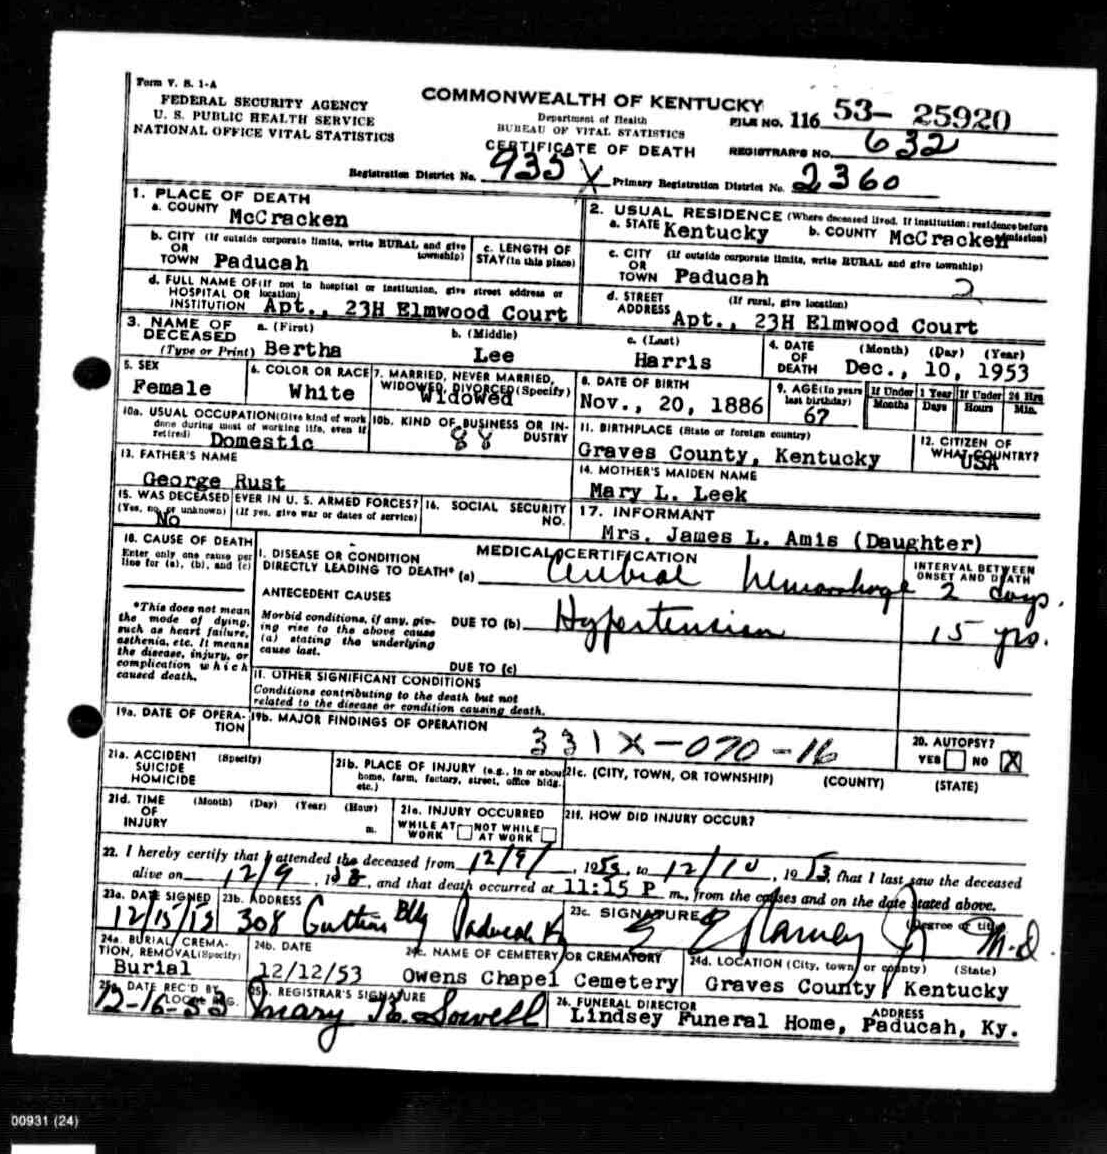 Form V. S. 1-A
FEDERAL SECURITY AGENCY
U. S. PUBLIC HEALTH SERVICE
NATIONAL OFFICE VITAL STATISTICS
COMMONWEALTH OF KENTUCKY
Department of Health
BUREAU OF VITAL STATISTICS
CERTIFICATE OF DEATH
FILE NO. 116 53- 25920
REGISTRAR'S NO. 632
Registration District No. 935 X Primary Registration District No. 2360
1. PLACE OF DEATH
a. COUNTY McCracken
2. USUAL RESIDENCE (Where deceased lived. If institution: residence before admission)
a. STATE Kentucky b. COUNTY McCracken
b. CITY (If outside corporate limits, write RURAL and give township)
OR
TOWN Paducah
c. LENGTH OF
STAY (in this place)
c. CITY (If outside corporate limits, write RURAL and give township)
OR
TOWN Paducah 2
d. FULL NAME OF (If not in hospital or institution, give street address or location)
HOSPITAL OR
INSTITUTION Apt., 23H Elmwood Court
d. STREET (If rural, give location)
ADDRESS Apt., 23H Elmwood Court
3. NAME OF DECEASED
(Type or Print)
a. (First) Bertha
b. (Middle) Lee
c. (Last) Harris
4. DATE OF DEATH
(Month) (Day) (Year)
Dec., 10, 1953
5. SEX
Female
6. COLOR OR RACE
White
7. MARRIED, NEVER MARRIED,
WIDOWED, DIVORCED (Specify)
Widowed
8. DATE OF BIRTH
Nov., 20, 1886
9. AGE (In years last birthday)
67
If Under 1 Year If Under 24 Hrs
Months Days Hours Min.
10a. USUAL OCCUPATION (Give kind of work done during most of working life, even if retired)
Domestic
10b. KIND OF BUSINESS OR INDUSTRY
88
11. BIRTHPLACE (State or foreign country)
Graves County, Kentucky
12. CITIZEN OF
WHAT COUNTRY?
USA
13. FATHER'S NAME
George Rust
14. MOTHER'S MAIDEN NAME
Mary L. Leek
15. WAS DECEASED EVER IN U. S. ARMED FORCES?
(Yes, no, or unknown) (If yes, give war or dates of service)
No
16. SOCIAL SECURITY
NO.
17. INFORMANT
Mrs. James L. Amis (Daughter)
18. CAUSE OF DEATH
Enter only one cause per
line for (a), (b), and (c)
MEDICAL CERTIFICATION
I. DISEASE OR CONDITION
DIRECTLY LEADING TO DEATH* (a) Cerebral hemorrhage
INTERVAL BETWEEN
ONSET AND DEATH
2 days.
*This does not mean
the mode of dying,
such as heart failure,
asthenia, etc. It means
the disease, injury, or
complication which
caused death.
ANTECEDENT CAUSES
Morbid conditions, if any, giv-
ing rise to the above cause
(a) stating the underlying
cause last.
DUE TO (b) Hypertension 15 yrs.
DUE TO (c)
II. OTHER SIGNIFICANT CONDITIONS
Conditions contributing to the death but not
related to the disease or condition causing death.
19a. DATE OF OPERA-
TION
19b. MAJOR FINDINGS OF OPERATION
331X-070-16
20. AUTOPSY?
YES NO X
21a. ACCIDENT (Specify)
SUICIDE
HOMICIDE
21b. PLACE OF INJURY (e.g., in or about
home, farm, factory, street, office bldg.
etc.)
21c. (CITY, TOWN, OR TOWNSHIP) (COUNTY) (STATE)
21d. TIME (Month) (Day) (Year) (Hour)
OF
INJURY m.
21e. INJURY OCCURRED
WHILE AT WORK NOT WHILE AT WORK
21f. HOW DID INJURY OCCUR?
22. I hereby certify that I attended the deceased from 12/9/, 1953, to 12/10, 1953, that I last saw the deceased
alive on 12/9, 1953, and that death occurred at 11:15 P m., from the causes and on the date stated above.
23a. DATE SIGNED
12/15/53
23b. ADDRESS
308 Bldg Paducah Ky
23c. SIGNATURE (Degree or title)
M.D.
24a. BURIAL, CREMA-
TION, REMOVAL (Specify)
Burial
24b. DATE
12/12/53
24c. NAME OF CEMETERY OR CREMATORY
Owens Chapel Cemetery
24d. LOCATION (City, town, or county) (State)
Graves County, Kentucky
25a. DATE REC'D BY
LOCAL REG.
12-16-53
25b. REGISTRAR'S SIGNATURE
Mary Sowell
26. FUNERAL DIRECTOR ADDRESS
Lindsey Funeral Home, Paducah, Ky.
00931 (24)